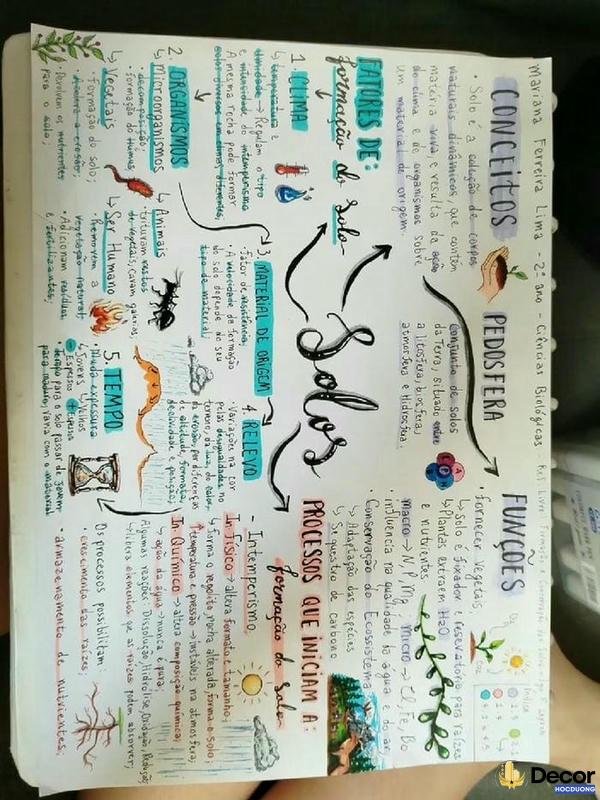 Mariana Ferreira Lima - 2º ano - Ciências Biológicas
CONCEITOS
• Solo é a coleção de corpos
naturais dinâmicos, que contém
matéria viva e resulta da ação
do clima e de organismos sobre
um material de origem.
PEDOSFERA
Conjunto de solos
da Terra, situado entre
a litosfera, biosfera,
atmosfera e Hidrosfera.
FUNÇÕES
fornecer vegetais,
↳ Solo é fixador e reservatório para raízes
↳ Plantas extraem H2O
e nutrientes
Macro → N, P, Mg; Micro → Cl, Fe, Bo,
influencia na qualidade da água e do ar
Conservação do Ecossistema
↳ Adaptação das espécies
↳ Sequestro de carbono
O2
CO2
Solos
FATORES DE:
formação do solo
1. CLIMA
↳ temperatura e
umidade → Regulam o tipo
e intensidade do intemperismo
A mesma rocha pode formar
solos diversos em climas diferentes.
2. ORGANISMOS
↳ Microorganismos
decomposição,
• formação do húmus
↳ Vegetais
• Formação do solo;
• Devolvem os nutrientes
para o solo;
↳ Animais
• trituram restos
de vegetais, cavam galerias;
↳ Ser Humano
• Removem a
vegetação natural;
• Adicionam resíduos
e fertilizantes;
3. MATERIAL DE ORIGEM
• Fator de resistência;
• A velocidade da formação
do solo depende do seu
tipo de material;
4. RELEVO
• Variações na cor
pelas desigualdades no
terreno, da luz, do calor,
da erosão, por diferenças
de altitude, formação,
declividade e posição;
5. TEMPO
• Muda espessura
Jovens Velhos
- Espesso + Espesso
• tempo para o solo passar de jovem
para maduro, varia com o material
PROCESSOS QUE INICIAM A:
formação do solo
- Intemperismo
In. Físico → altera formato e tamanho,
↳ Forma o regolito, rocha alterada, forma o solo;
temperatura e pressão → instáveis na atmosfera;
In. Químico → altera composição química;
↳ ação da água → nunca é pura;
Algumas reações: Dissolução, Hidrólise, Oxidação, Redução
↳ libera elementos que as raízes podem absorver;
Os processos possibilitam:
• crescimento das raízes;
• armazenamento de nutrientes;
Decor
HOCDUONG